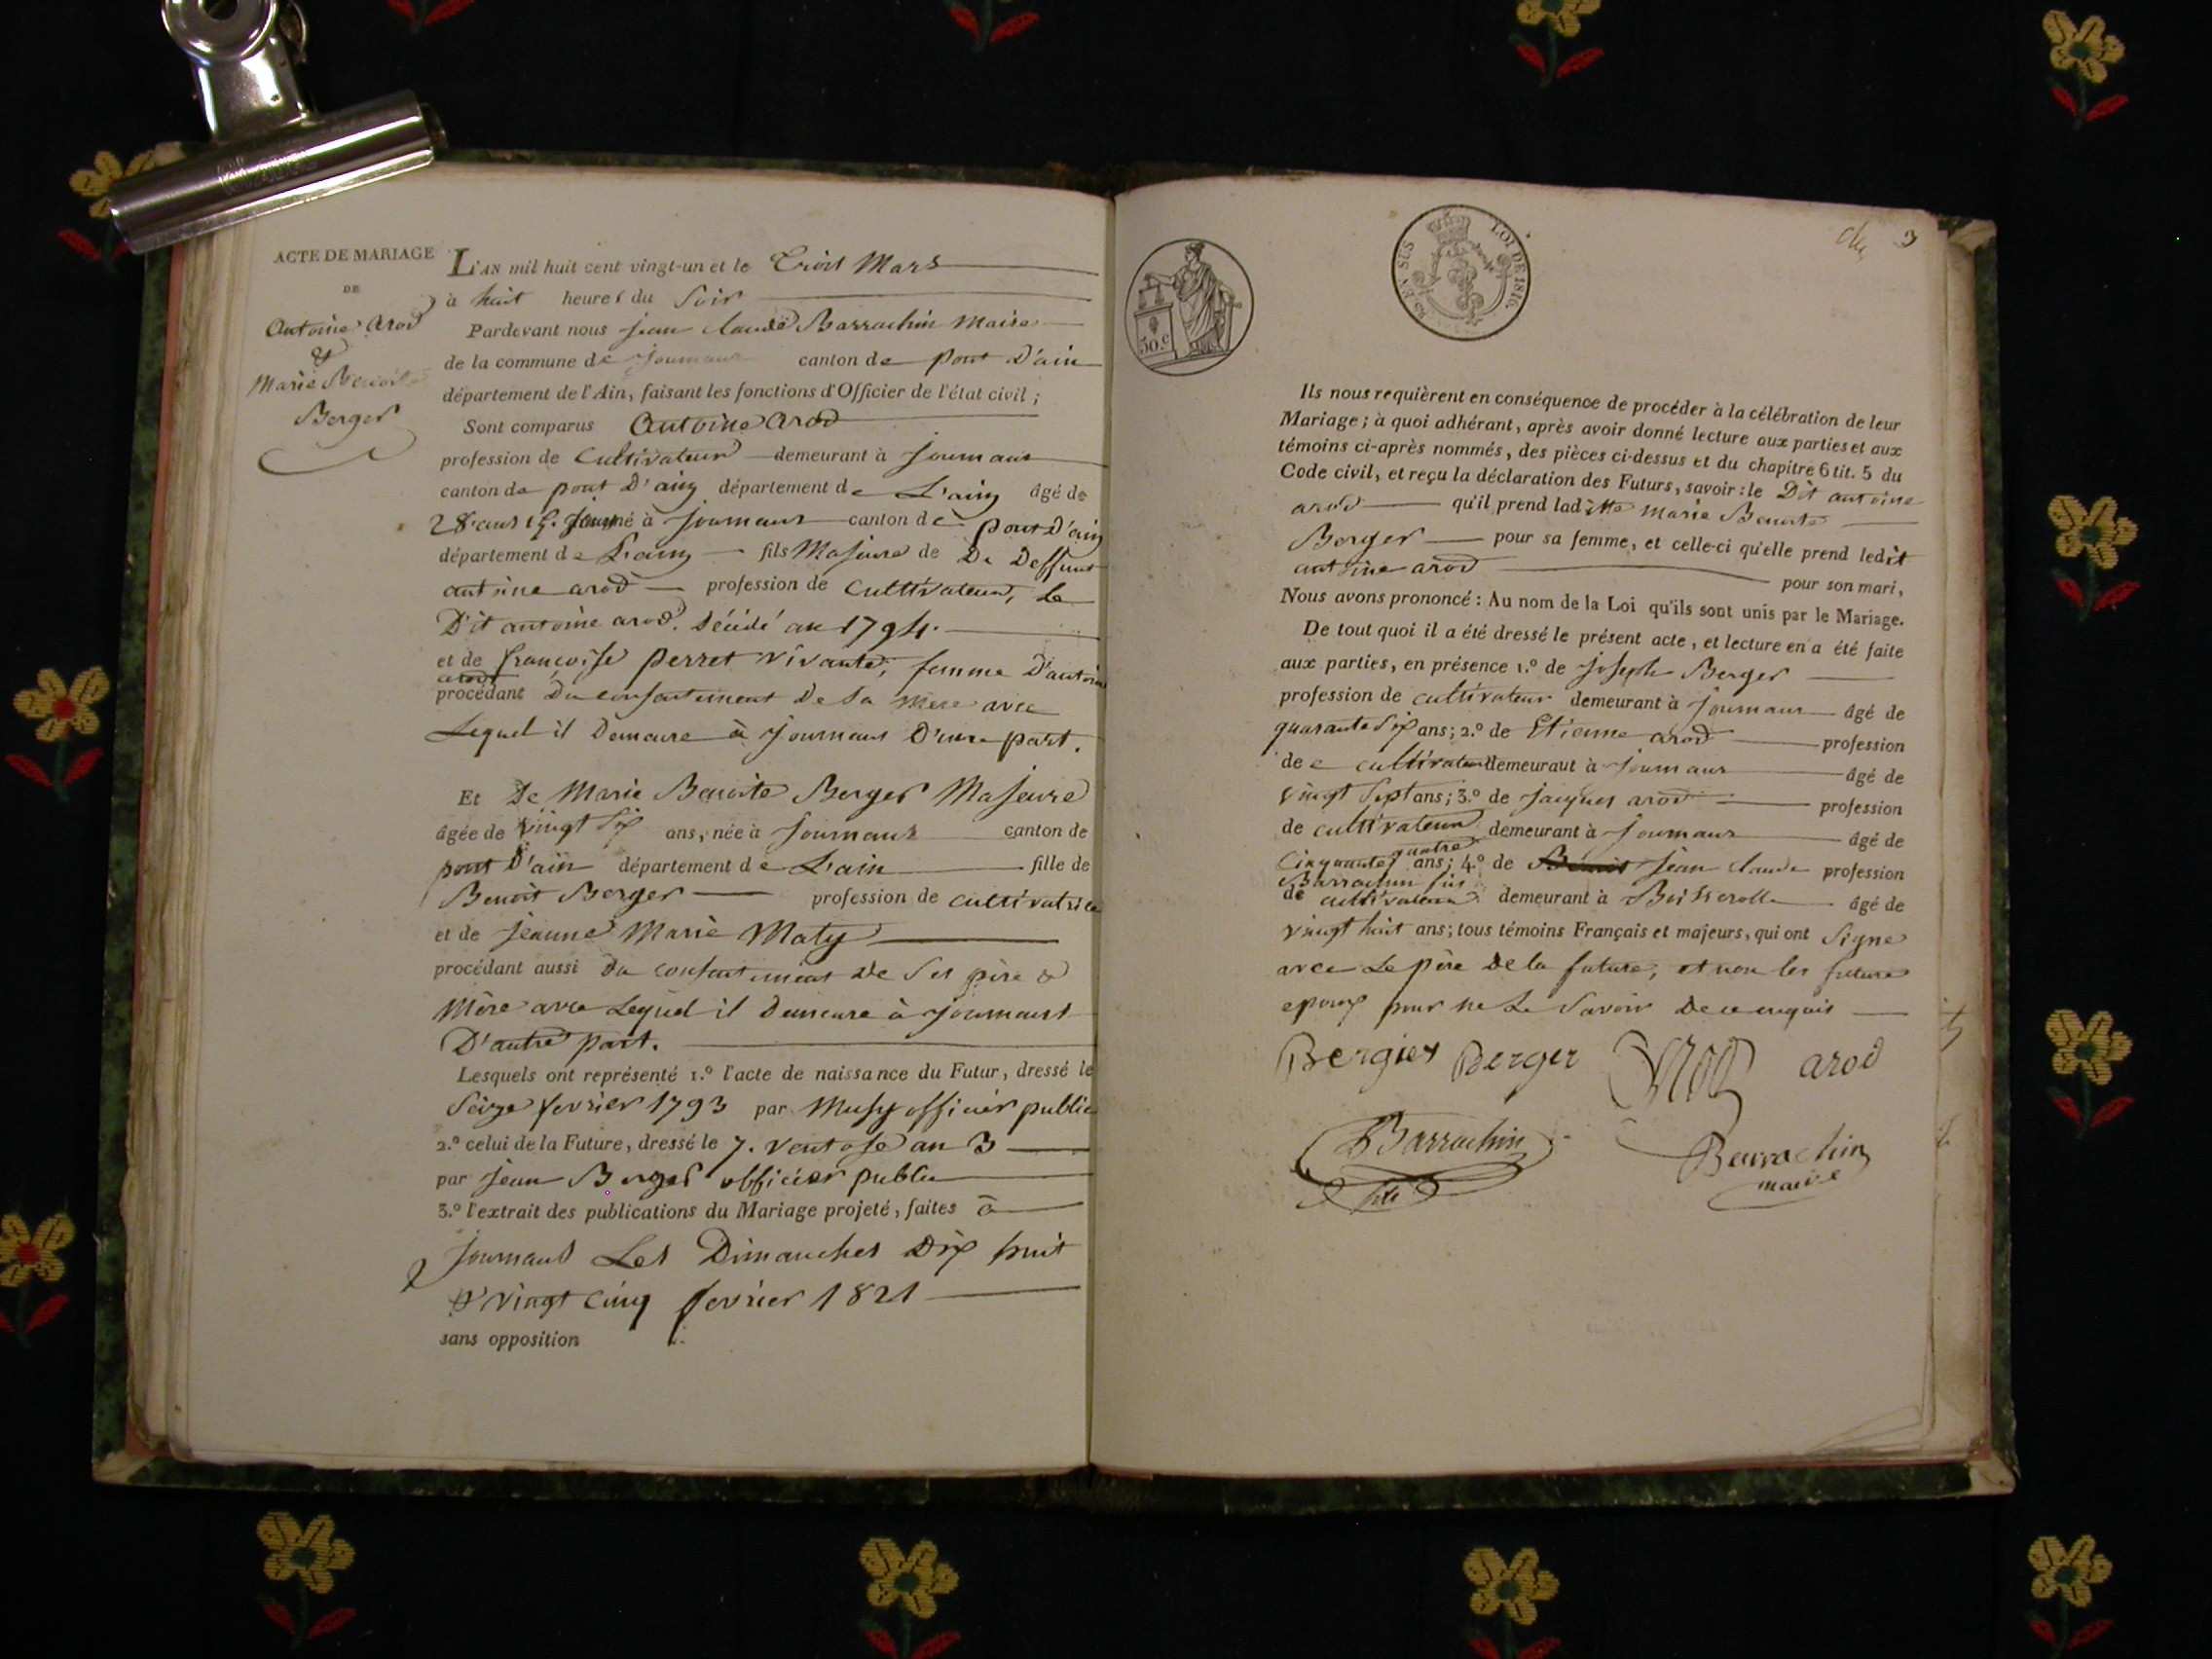 ACTE DE MARIAGE
DE
Antoine arod
&
Marie Benoite
Berger
L'AN mil huit cent vingt-un et le Trois Mars
à huit heures du Soir
Pardevant nous jean claude Barrachin Maire
de la commune de journans canton de pont D'ain
département de l'Ain, faisant les fonctions d'Officier de l'état civil;
Sont comparus Antoine arod
profession de Cultivateur demeurant à journans
canton de pont D'ain département de L'ain âgé de
28 ans 15 jours né à journans canton de pont D'ain
département de L'ain fils Majeure de De Deffunt
antoine arod profession de cultivateur, Le
Dit antoine arod. Décédé an 1794.
et de françoise perret vivante, femme D'antoine
arod
procédant Du consentement De Sa Mere avec
Lequel il Demeure à journans D'une part.
Et De Marie Benoite Berger Majeure
âgée de vingt Six ans, née à journans canton de
pont D'ain département de L'ain fille de
Benoit Berger profession de cultivatrice
et de jeanne Marie Maty
procédant aussi Du consentement De Ses père &
Mère avec Lequel il Demeure à journans
D'autre part.
Lesquels ont représenté 1.º l'acte de naissance du Futur, dressé le
Seize fevrier 1793 par Musy officier public
2.º celui de la Future, dressé le 7. ventose an 3
par jean Berger officier public
3.º l'extrait des publications du Mariage projeté, faites à
journans Les Dimanches Dix huit
& vingt cinq fevrier 1821
sans opposition
30.c
EN SUS LOI DE 1816.
3
Ils nous requièrent en conséquence de procéder à la célébration de leur
Mariage; à quoi adhérant, après avoir donné lecture aux parties et aux
témoins ci-après nommés, des pièces ci-dessus et du chapitre 6 tit. 5 du
Code civil, et reçu la déclaration des Futurs, savoir: le Dit antoine
arod qu'il prend laditte marie Benoite
Berger pour sa femme, et celle-ci qu'elle prend ledit
antoine arod pour son mari,
Nous avons prononcé: Au nom de la Loi qu'ils sont unis par le Mariage.
De tout quoi il a été dressé le présent acte, et lecture en a été faite
aux parties, en présence 1.º de joseph Berger
profession de cultivateur demeurant à journans âgé de
quarante Six ans; 2.º de Etienne arod profession
de cultivateur demeurant à journans âgé de
vingt Sept ans; 3.º de jacques arod profession
de cultivateur demeurant à journans âgé de
Cinquante quatre ans; 4.º de jean claude profession
Barrachin fils
de cultivateur demeurant à âgé de
vingt huit ans; tous témoins Français et majeurs, qui ont Signe
avec Le père De la future, et non les future
epoux pour ne Le Savoir De ce enquis
Bergier Berger arod arod
Barrachin Barrachin
fils maire